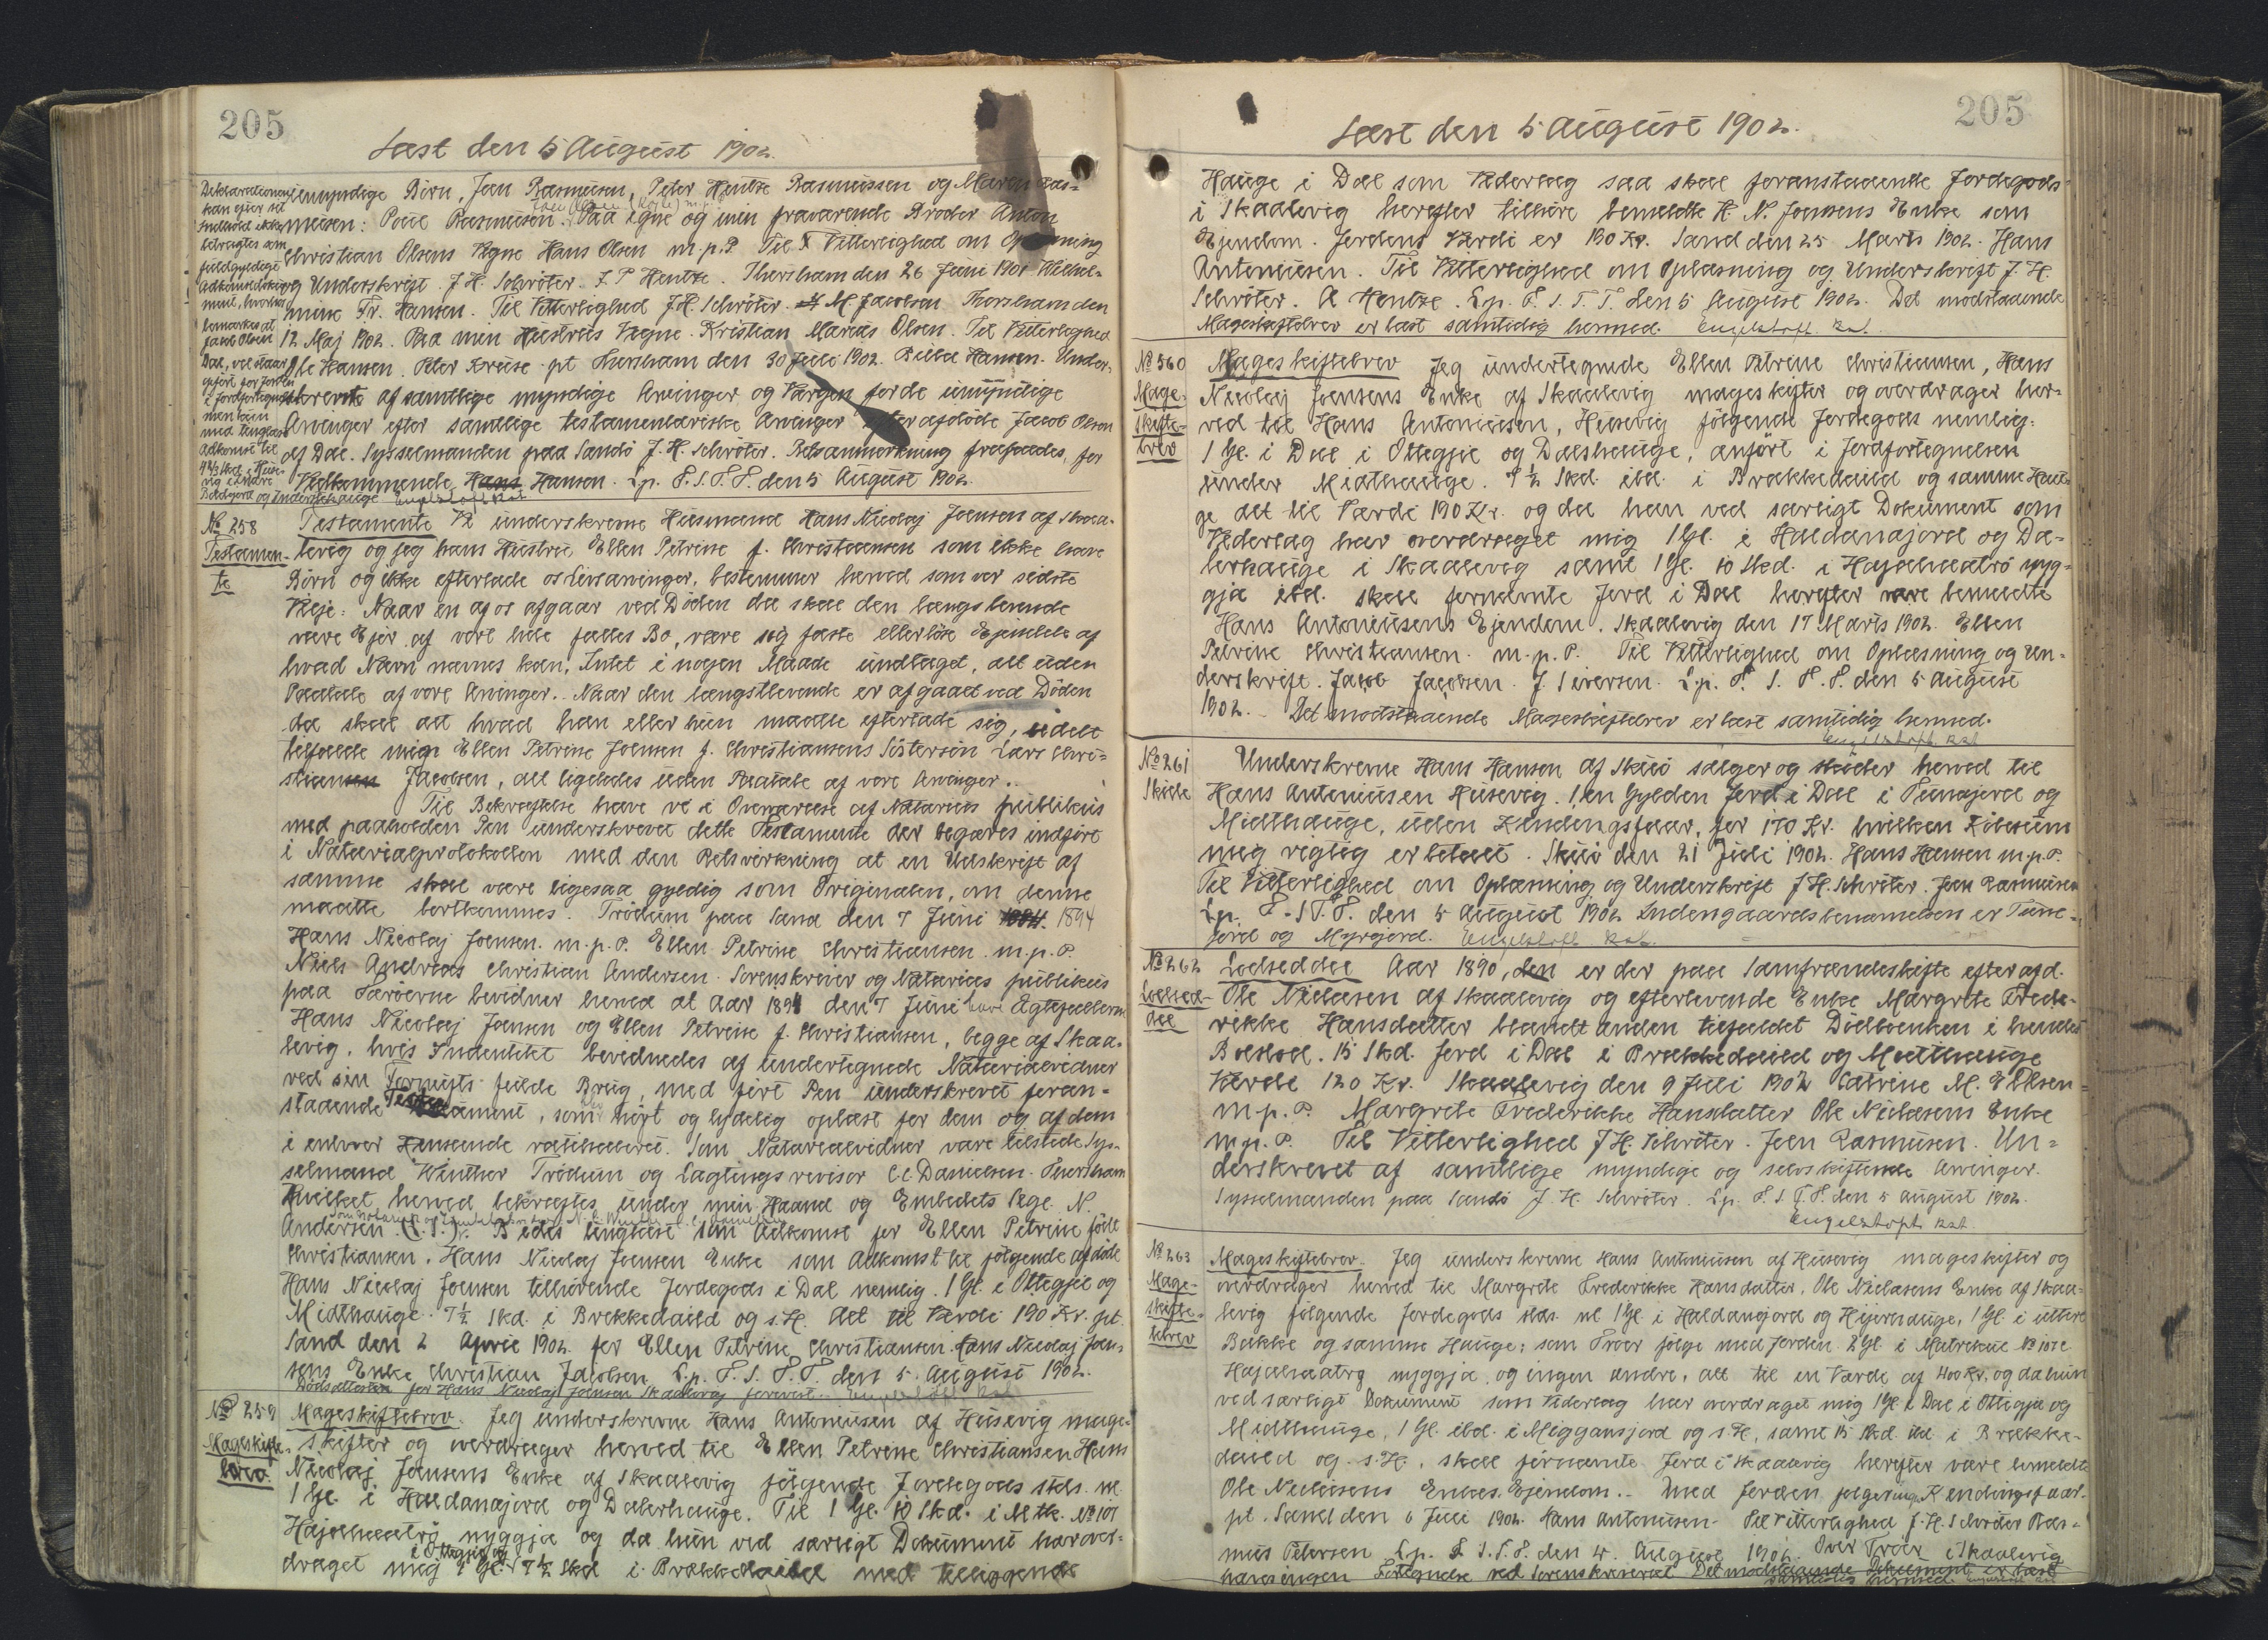 205
Læst den 5 August 1902.
Deklarationen
kan efter sit
Indhold ikke
betragtes som
fuldgyldigt
Adkomstdoku-
ment, hvorhos
bemærkes at
Jacob Olsen
Dal, vel staar
opført for Jorden
i Jordfortegnelsen
men kun
med tinglæst
Adkomst til
umyndige Børn, Joen Rasmussen, Peter Hentze Rasmussen og Maren Ras-
mussen: Poul Rasmussen. Paa egne og min fraværende Broder Anton
Christian Olsens Vegne Hans Olsen m.p.P. Til Vitterlighed om Oplæsning
og Underskrift. J. H. Schröter. J P Hentze. Thorshavn den 26 Juni 1901 Wilhel-
mine Fr. Hansen. Til Vitterlighed J.H. Schröter. M. Jacobsen Thorshavn den
12 Maj 1902. Paa min Hustrus Vegne. Kristian Marius Olsen. Til Vitterlighed
Ole Hansen. Peter Kruse. pt Thorshavn den 30 Juli 1902. Hansen. Under-
skrevet af samtlige myndige Arvinger og Værgen for de umyndige
Arvinger efter samtlige testamentariske Arvinger efter afdøde Jacob Olsen
af Dal. Sysselmanden paa Sandö J. H. Schröter. Retsanmærkning frafaldes, for
Vedkommende Hans Hansen. Lp. F.S.T.P. den 5 August 1902.
Bødlgjord og Inderstehauge Engelstoft kst
No 258
Testamen-
te
Testamente Vi underskrevne Husmand Hans Nicolaj Joensen af Skaa-
levig og jeg hans Hustru Ellen Petrine f. Christiansen som ikke have
Børn og ikke efterlade os Livsarvinger, bestemmer herved som vor sidste
Vilje: Naar en af os afgaar ved Döden da skal den længstlevende
være Ejer af vort hele fælles Bo, være sig faste eller löse Ejendele af
hvad Navn nævnes kan, Intet i nogen Maade undtaget, alt uden
Paatale af vore Arvinger. Naar den længstlevende er afgaaet ved Döden
da skal alt hvad han eller hun maatte efterlade sig, udelt
tilfalde min Ellen Petrine Joensen f. Christiansens Söstersön Lars Chri-
stiansen Jacobsen, alt ligeledes uden Paatale af vore Arvinger.
Til Bekræftelse have vi i Overværelse af Notarius publikus
med paaholden Pen underskrevet dette Testamente der begæres indført
i Notarialprotokollen med den Retsvirkning at en Udskrift af
samme skal være ligesaa gyldig som Originalen, om denne
maatte bortkommes. Trödum paa Sand den 7 Juni 1884. 1894
Hans Nicolaj Joensen. m.p.P. Ellen Petrine Christiansen. m.p.P.
Niels Andreas Christian Andersen Sorenskriver og Notarius publikus
paa Færöerne bevidner herved at Aar 1894 den 7 Juni have Ægtefællerne
Hans Nicolaj Joensen og Ellen Petrine f. Christiansen, begge af Skaa-
levig, hvis Indentitet bevidnedes af undertegnede Notarialvidner
ved sin Fornufts fulde Brug, med fört Pen underskrevet foran-
staaende Testament, som höjt og lydelig oplæst for dem og af dem
i enhver Henseende ratihaberet. Som Notarialvidner vare tilstede Sys-
selmand Winther Trödum og Lagtingsrevisor C.C. Danielsen Thorshavn
Hvilket herved bekræftes under min Haand og Embedets Segl. N.
Andersen. (L.S.). Bedes tinglæst som Adkomst for Ellen Petrine født
Christiansen, Hans Nicolaj Joensen Enke som Adkomst til følgende afdöde
Hans Nicolaj Joensen tilhørende Jordegods i Dal nemlig. 1 Gl. i Ottegjil og
Midthauge. 7½ Skd. i Brekkedaild og s.H. Alt til Værdi 190 Kr. pt.
Sand den 2 April 1902. for Ellen Petrine Christiansen. Hans Nicolaj Joen-
sens Enke Christian Jacobsen L.p. F.S.T.P. den 5. August 1902.
Dödsattesten for Hans Nicolaj Joensen Skaalevig forevist. Engelstoft kst
No 259
Mageskifte-
brev.
Mageskiftebrev. Jeg underskrevne Hans Antoniusen af Husevig mage-
skifter og overdrager herved til Ellen Petrine Christiansen Hans
Nicolaj Joensens Enke af Skaalevig følgende Jordegods stds. nl.
1 Gl. i Haldanajord og Dalerhauge. Til 1 Gl. 10 Skd. i Mtk. No 101
Hajalmatrö nyggja og da hun ved særligt Dokument har over-
draget mig 1 Gl. i Ottegjil og 7½ Skd i Brekkedaild med tilliggende
205
Læst den 5 August 1902.
Hauge i Dal som Vederlag saa skal foranstaaende Jordegods
i Skaalevig herefter tilhøre bemeldte H. N. Joensens Enke som
Ejendom. Jordens Værdi er 190 Kr. Sand den 25 Marts 1902. Hans
Antoniusen. Til Vitterlighed om Oplæsning og Underskrift J. H.
Schröter. A Hentze. L.p. F. S. T. P. den 5 August 1902. Det modstaaende
Mageskiftebrev er læst samtidig hermed. Engelstoft kst.
No 560
Mage-
skifte-
brev
Mageskiftebrev Jeg undertegnede Ellen Petrine Christiansen, Hans
Nicolaj Joensens Enke af Skaalevig mageskifter og overdrager her-
ved til Hans Antoniusen, Husevig følgende Jordegods nemlig:
1 Gl. i Dal i Ottegjil og Dalshauge, anfört i Jordfortegnelsen
under Midthauge. 7½ Skd. ibd. i Brekkedaild og samme Hau-
ge alt til Værdi 190 Kr. og da han ved særligt Dokument som
Vederlag har overdraget mig 1 Gl. i Haldanajord og Da-
lerhauge i Skaalevig samt 1 Gl. 10 Skd. i Hajalmatrö nyg-
gja ibd. skal fornævnte Jord i Dal herefter være bemeldte
Hans Antoniusens Ejendom. Skaalevig den 17 Marts 1902. Ellen
Petrine Christiansen. m.p.P. Til Vitterlighed om Oplæsning og Un-
derskrift. Jacob Jacobsen. J. Siversen. L.p. F. S. T. P. den 5 August
1902. Det modstaaende Mageskiftebrev er læst samtidig hermed.
Engelstoft kst
No 261
Skjøde
Underskrevne Hans Hansen af Skuö sælger og skøder herved til
Hans Antoniusen Husevig. 1, en Gylden Jord i Dal i Tunajord og
Midthauge, uden Kendingsfaar, for 170 Kr. hvilken Købesum
mig rigtig er betalt. Skuö den 21 Juli 1902. Hans Hansen m.p.P.
Til Vitterlighed om Oplæsning og Underskrift J H. Schröter. Joen Rasmussen
L.p. F.S.T.P. den 5 August 1902 Indengaardsbenævnelsen er Tune-
jord og Myrejord. Engelstoft kst.
No 262
Lodsed-
del
Lodseddel Aar 1890, den er der paa Samfrændeskifte efter afd.
Ole Nielasen af Skaalevig og efterlevende Enke Margrete Frede-
rikke Hansdatter blandt anden tilfaldet Dödboenken i hendes
Boeslod. 15 Skd. Jord i Dal i Brekkedaild og Midthauge
Værdi 120 Kr. Skaalevig den 9 Juli 1902 Catrine M. Ellsen
m.p.P. Margrete Frederikke Hansdatter Ole Nielasens Enke
m.p.P. Til Vitterlighed J H. Schröter. Joen Rasmussen. Un-
derskrevet af samtlige myndige og selvskiftende Arvinger.
Sysselmanden paa Sandö J. H. Schröter. L.p. F.S.T.P. den 5 August 1902.
Engelstoft kst.
No 263
Mage-
skifte-
brev
Mageskiftebrev. Jeg underskrevne Hans Antoniusen af Husevig mageskifter og
overdrager herved til Margrete Frederikke Hansdatter, Ole Nielasens Enke af Skaa-
levig følgende Jordegods stds. nl 1 Gl. i Haldanajord og Hjjernauge, 1 Gl. i uttere
Bakke og samme Hauge; som Traer følge med Jorden. 2 Gl. i Matrekul No 101e
Hajalmatrø nyggja, og ingen andre, alt til en Værdi af 400 Kr. og da hun
ved særligt Dokument som Vederlag har overdraget mig 1 Gl i Dal i Ottigjil og
Midthauge, 1 Gl. ibd. i Miggansjord og s.H, samt 15 Skd. ibd. i Brekke-
daild og s.H, skal førnævnte Jord i Skaalevig herefter være bemeldte
Ole Nielasens Enkes Ejendom. Med Jorden følger ingen Kendingsfaar.
pt. Sand den 6 Juli 1902. Hans Antoniusen. Til Vitterlighed J.H. Schröter Ras-
mus Petersen L.p. F.S.T.P. den 4. August 1902. Over Traer i Skaalevig
haves ingen Fortegnelse ved Sorenskriveriet Det modstaaende Dokument er læst
samtidig hermed.